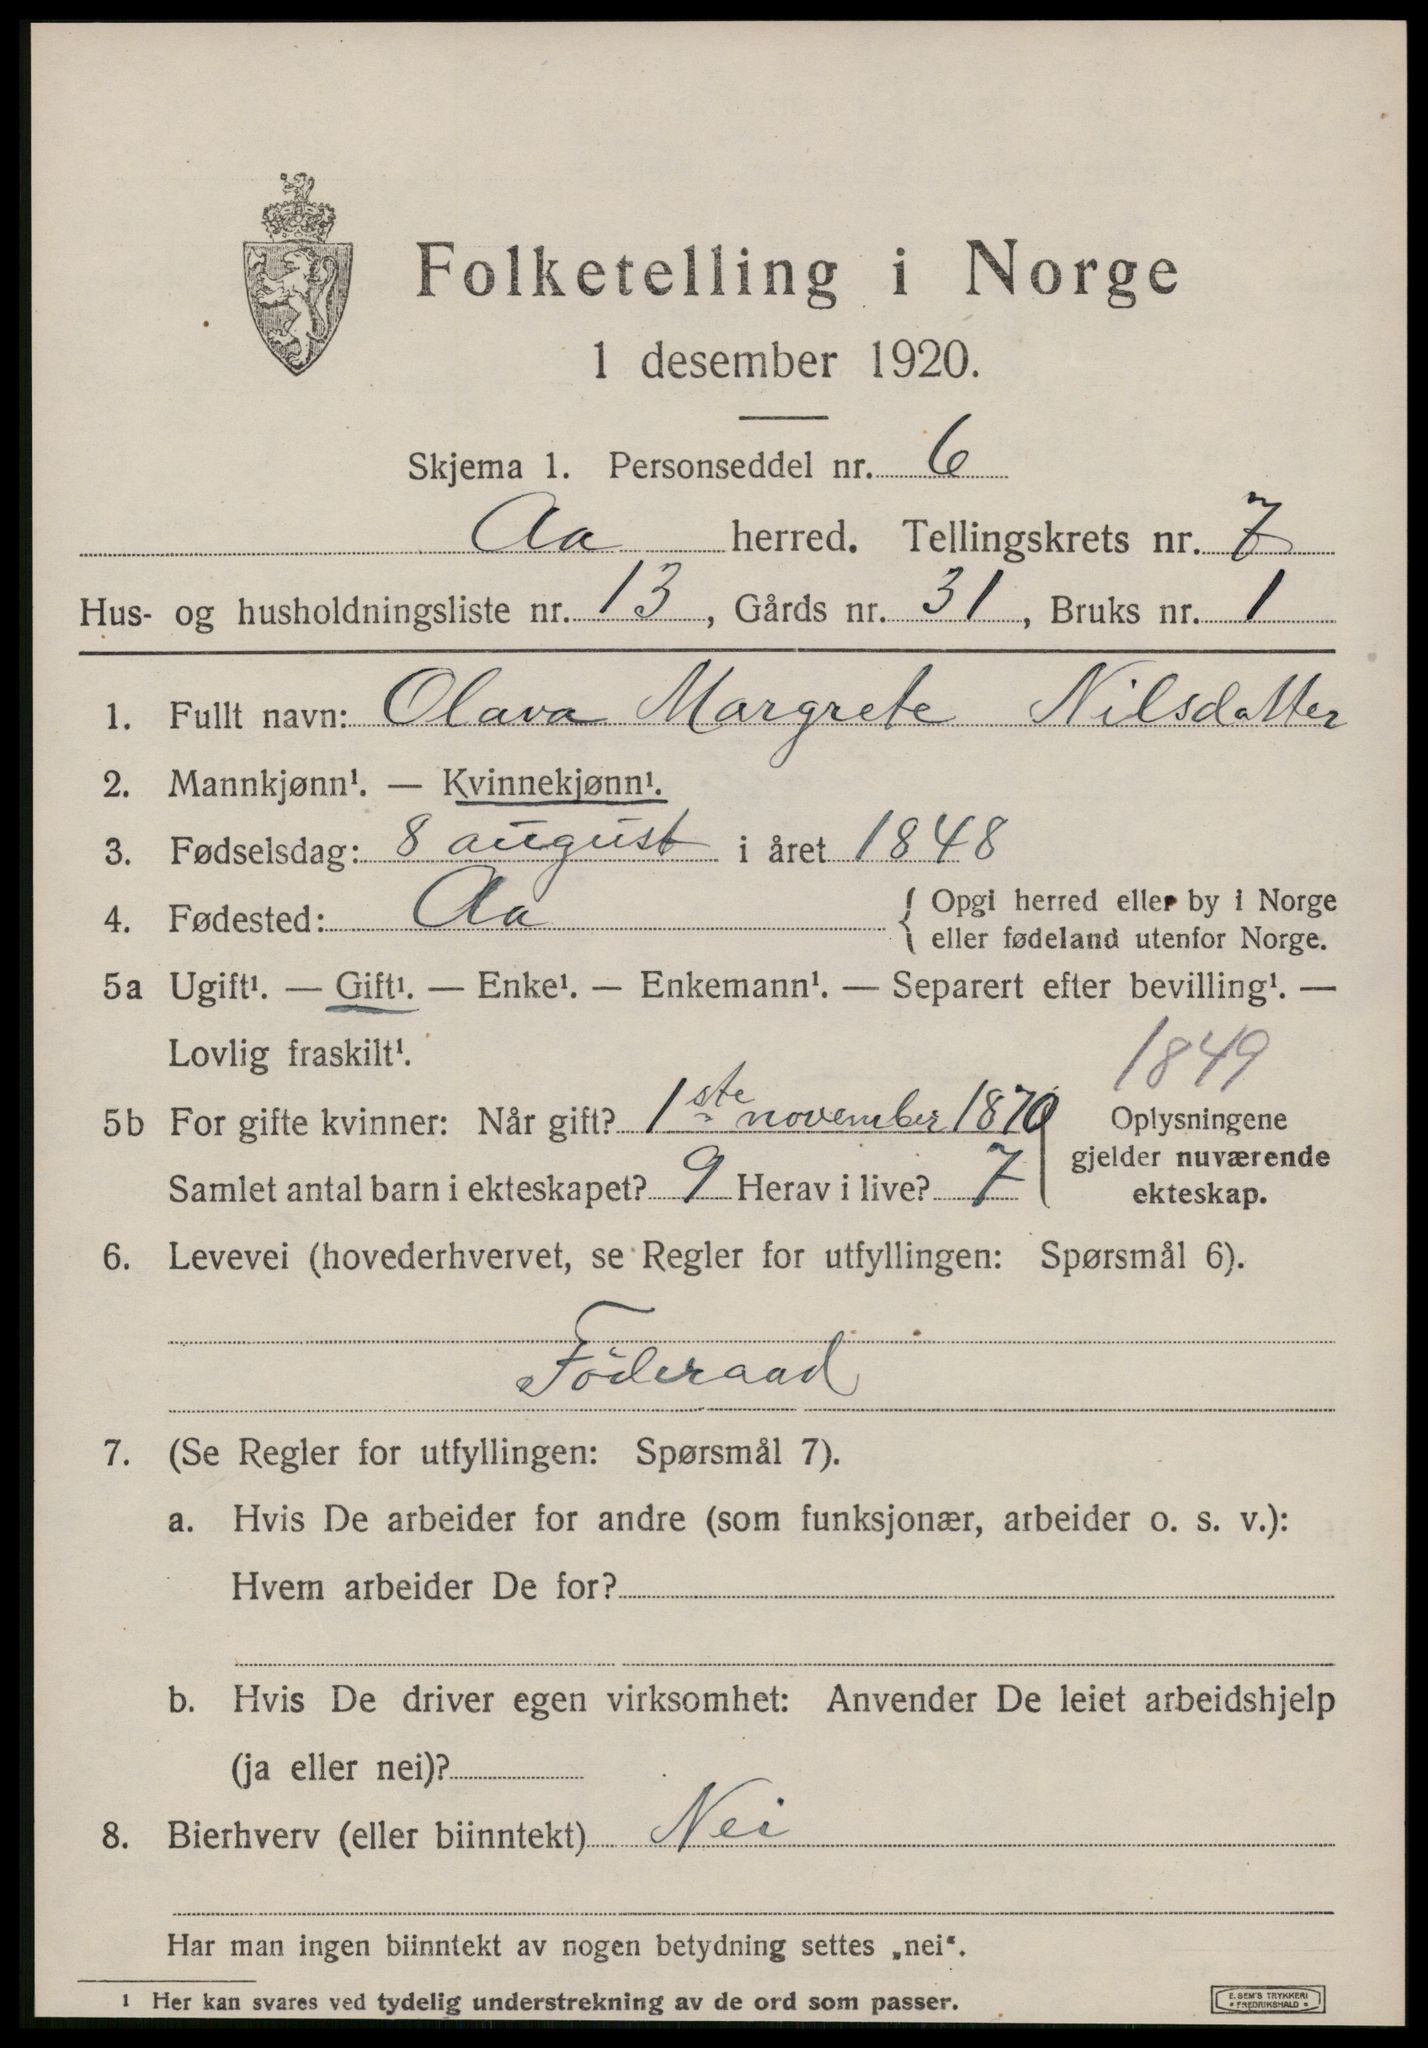 Folketelling i Norge
1 desember 1920.
Skjema 1. Personseddel nr. 6
Aa herred. Tellingskrets nr. 7
Hus- og husholdningsliste nr. 13, Gårds nr. 31, Bruks nr. 1
1. Fullt navn: Olava Margrete Nilsdatter
2. Mannkjønn¹. — Kvinnekjønn¹.
3. Fødselsdag: 8 august i året 1848
4. Fødested: Aa { Opgi herred eller by i Norge
eller fødeland utenfor Norge.
5a Ugift¹. — Gift¹. — Enke¹. — Enkemann¹. — Separert efter bevilling¹. —
Lovlig fraskilt¹.
1849
5b For gifte kvinner: Når gift? 1ste november 1870
Samlet antal barn i ekteskapet? 9 Herav i live? 7
Oplysningene
gjelder nuværende
ekteskap.
6. Levevei (hovederhvervet, se Regler for utfyllingen: Spørsmål 6).
Föderaad
7. (Se Regler for utfyllingen: Spørsmål 7).
a. Hvis De arbeider for andre (som funksjonær, arbeider o. s. v.):
Hvem arbeider De for?
b. Hvis De driver egen virksomhet: Anvender De leiet arbeidshjelp
(ja eller nei)?
8. Bierhverv (eller biinntekt) Nei
Har man ingen biinntekt av nogen betydning settes „nei“.
1 Her kan svares ved tydelig understrekning av de ord som passer.
E. SEM'S TRYKKERI
* FREDRIKSHALD *